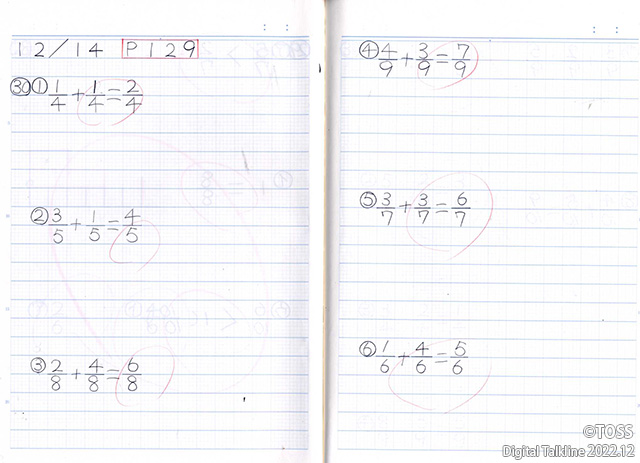 12/14 P129
㉚① 1/4 + 1/4 = 2/4
② 3/5 + 1/5 = 4/5
③ 2/8 + 4/8 = 6/8
④ 4/9 + 3/9 = 7/9
⑤ 3/7 + 3/7 = 6/7
⑥ 1/6 + 4/6 = 5/6
©TOSS
Digital Talkline 2022.12